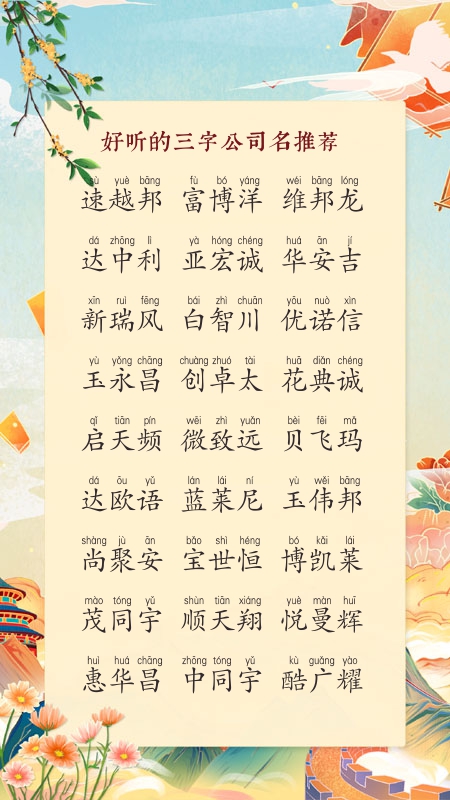 好听的三字公司名推荐
sù yuè bāng fù bó yáng wéi bāng lóng
速越邦 富博洋 维邦龙
dá zhōng lì yà hóng chéng huá ān jí
达中利 亚宏诚 华安吉
xīn ruì fēng bái zhì chuān yōu nuò xìn
新瑞风 白智川 优诺信
yù yǒng chāng chuàng zhuó tài huā diǎn chéng
玉永昌 创卓太 花典诚
qǐ tiān pín wēi zhì yuǎn bèi fēi mǎ
启天频 微致远 贝飞玛
dá ōu yǔ lán lái ní yù wěi bāng
达欧语 蓝莱尼 玉伟邦
shàng jù ān bǎo shì héng bó kǎi lái
尚聚安 宝世恒 博凯莱
mào tóng yǔ shùn tiān xiáng yuè màn huī
茂同宇 顺天翔 悦曼辉
huì huá chāng zhōng tóng yǔ kù guǎng yào
惠华昌 中同宇 酷广耀